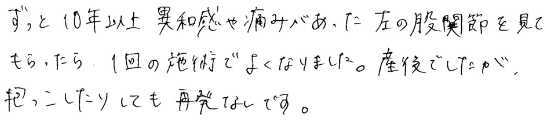 ずっと10年以上 異和感や痛みがあった左の股関節を見て
もらったら、1回の施術でよくなりました。産後でしたが、
抱っこしたりしても再発ないです。